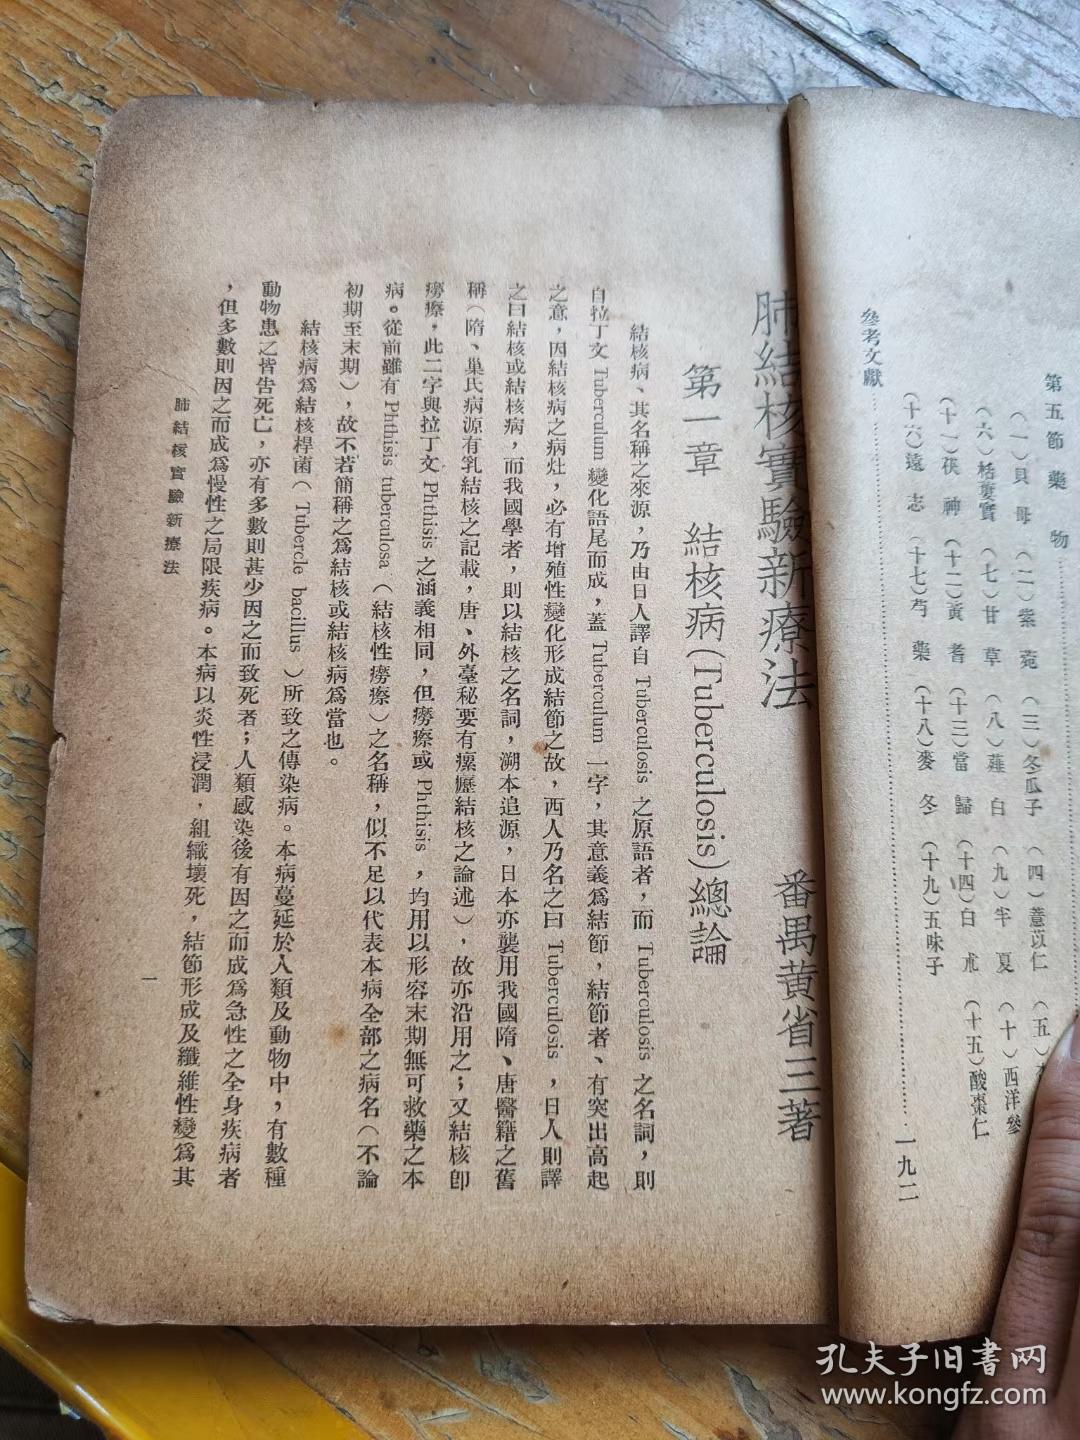 第五節 藥 物
(一)貝 母 (二)紫 菀 (三)冬瓜子 (四)薏苡仁 (五)
(六)栝蔞實 (七)甘 草 (八)薤 白 (九)半 夏 (十)西洋參
(十一)茯 神 (十二)黃 耆 (十三)當 歸 (十四)白 朮 (十五)酸棗仁
(十六)遠 志 (十七)芍 藥 (十八)麥 冬 (十九)五味子
參考文獻……一九二
肺結核實驗新療法 番禺黃省三著
第一章 結核病(Tuberculosis)總論
結核病、其名稱之來源，乃由日人譯自 Tuberculosis 之原語者，而 Tuberculosis 之名詞，則
自拉丁文 Tuberculum 變化語尾而成，蓋 Tuberculum 一字，其意義爲結節，結節者、有突出高起
之意，因結核病之病灶，必有增殖性變化形成結節之故，西人乃名之曰 Tuberculosis，日人則譯
之曰結核或結核病，而我國學者，則以結核之名詞，溯本追源，日本亦襲用我國隋、唐醫籍之舊
稱(隋、巢氏病源有乳結核之記載，唐、外臺秘要有瘰癧結核之論述)，故亦沿用之；又結核卽
癆瘵，此二字與拉丁文 Phthisis 之涵義相同，但癆瘵或 Phthisis，均用以形容末期無可救藥之本
病。從前雖有 Phthisis tuberculosa (結核性癆瘵)之名稱，似不足以代表本病全部之病名(不論
初期至末期)，故不若簡稱之爲結核或結核病爲當也。
結核病爲結核桿菌(Tubercle bacillus)所致之傳染病。本病蔓延於人類及動物中，有數種
動物患之皆告死亡，亦有多數則甚少因之而致死者；人類感染後有因之而成爲急性之全身疾病者
，但多數則因之而成爲慢性之局限疾病。本病以炎性浸潤，組織壞死，結節形成及纖維性變爲其
肺結核實驗新療法
一
孔夫子旧書网
www.kongfz.com